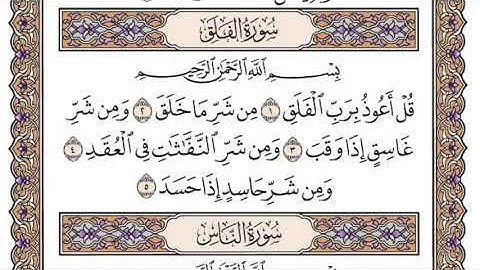 سُورَةُ الفَلَقِ
بِسْمِ ٱللَّهِ ٱلرَّحْمَٰنِ ٱلرَّحِيمِ
قُلْ أَعُوذُ بِرَبِّ ٱلْفَلَقِ ١ مِن شَرِّ مَا خَلَقَ ٢ وَمِن شَرِّ
غَاسِقٍ إِذَا وَقَبَ ٣ وَمِن شَرِّ ٱلنَّفَّٰثَٰتِ فِي ٱلْعُقَدِ ٤
وَمِن شَرِّ حَاسِدٍ إِذَا حَسَدَ ٥
سُورَةُ النَّاسِ